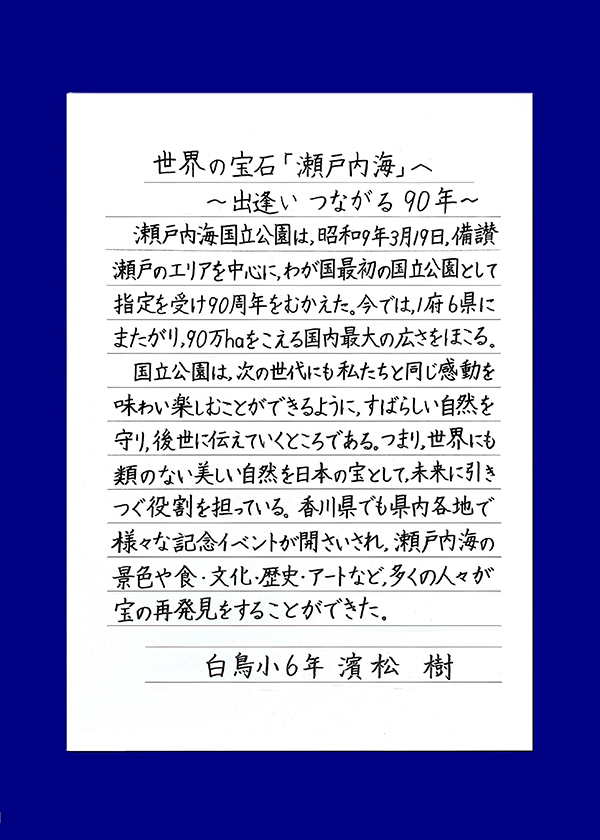 世界の宝石「瀬戸内海」へ
～出逢い つながる 90年～
瀬戸内海国立公園は,昭和9年3月19日,備讃
瀬戸のエリアを中心に,わが国最初の国立公園として
指定を受け90周年をむかえた。今では,1府6県に
またがり,90万haをこえる国内最大の広さをほこる。
国立公園は,次の世代にも私たちと同じ感動を
味わい楽しむことができるように,すばらしい自然を
守り,後世に伝えていくところである。つまり,世界にも
類のない美しい自然を日本の宝として,未来に引き
つぐ役割を担っている。香川県でも県内各地で
様々な記念イベントが開さいされ,瀬戸内海の
景色や食・文化・歴史・アートなど,多くの人々が
宝の再発見をすることができた。
白鳥小6年 濱松 樹